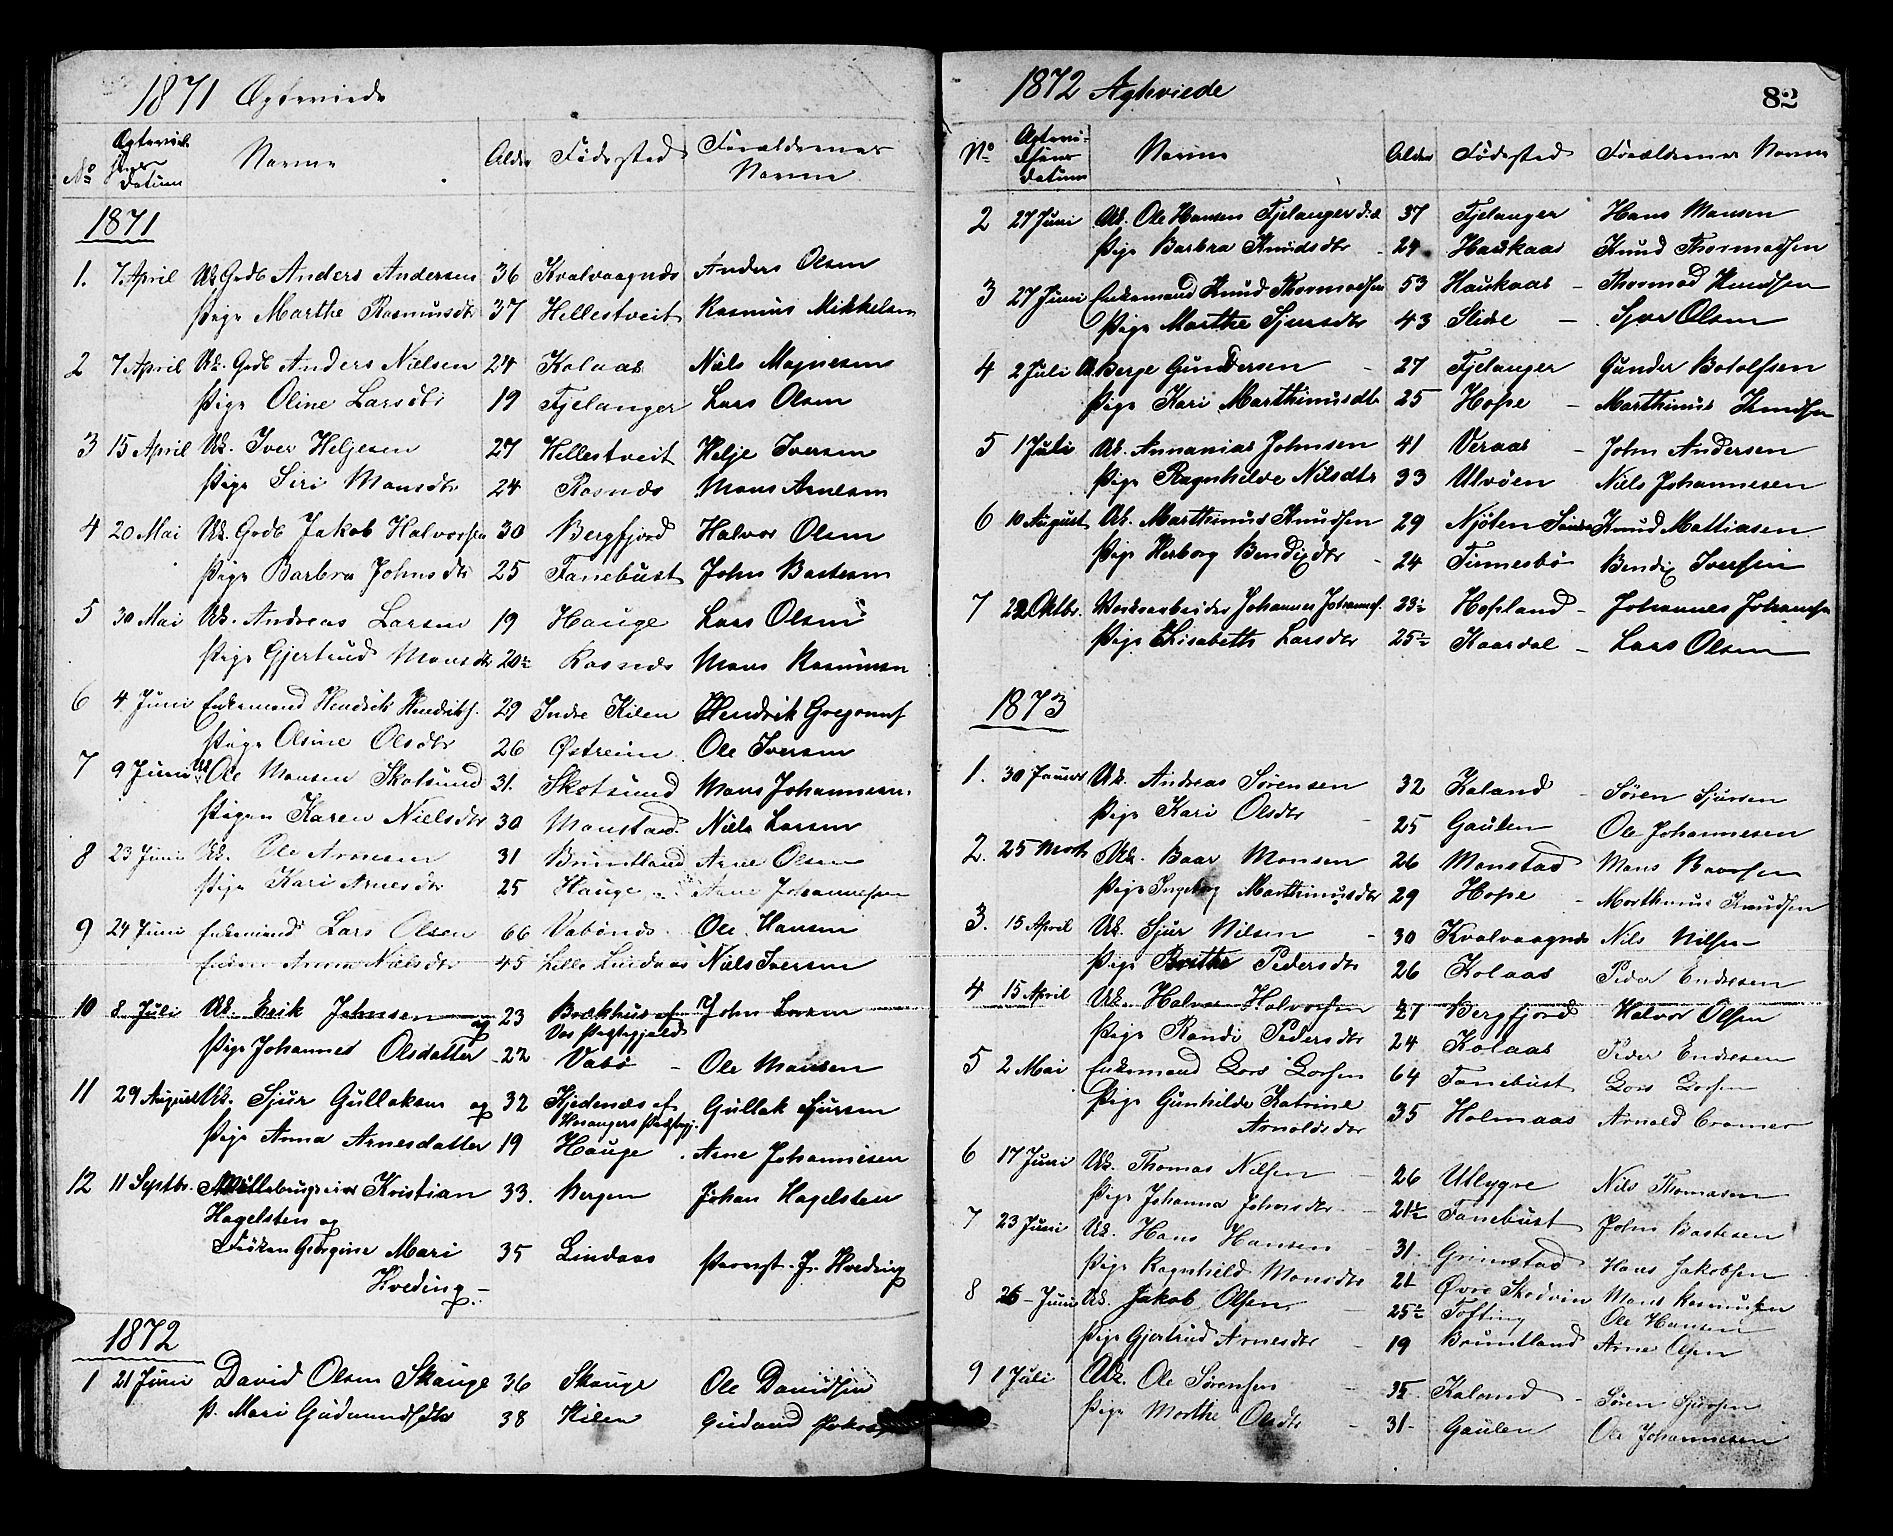 1871 Ægteviede
No Ægtevielsens Datum Navne Alder Fødested Forældrenes Navne
1871
1. 7. April Uk Gdb Anders Andersen 36 Kvalvaagnæs Anders Olsen
Pige Marthe Rasmusdtr 37 Hellestveit Rasmus Mikkelsen
2 7 April Uk. Gdb Anders Nielsen 24 Kolaas Niels Magnesen
Pige Oline Larsdtr 19 Fjelanger Lars Olsen
3 15 April Uk. Iver Heljesen 27 Hellestveit Helje Iversen
Pige Siri Monsdtr 24 Rosnæs Mons Arnesen
4 20 Mai Uk. Gdb Jakob Halvorsen 30 Bergfjord Halvor Olsen
Pige Barbra Johnsdtr 25 Fanebust John Bastesen
5 30 Mai Uk. Andreas Larsen 19 Hauge Lars Olsen
Pige Gjertrud Monsdtr 20½ Rosnæs Mons Rasmussen
6 4 Juni Enkemand Hendrik Hendriks. 29 Indre Kilen Hendrik Gregorius
Pige Olsine Olsdtr 26 Østreim Ole Iversen
7 9 Juni Uk. Ole Monsen Skotsund 31. Skotsund Mons Johannesen
Pigen Karen Nielsdtr 30 Monstad Niels Larsen
8 23 Juni Uk. Ole Arnesen 31 Bruntland Arne Olsen
Pige Kari Arnesdtr 25 Hauge Arne Johannessen
9 24 Juni Enkemand Lars Olsen 66 Vabønæs Ole Hansen
Enken Anna Nielsdtr 45 Lille Lindaas Niels Iversen
10 8 Juli Uk. Erik Johnsen og 23 Brækhus af Vos Præstegjeld John Larsen
Pige Johannes Olsdatter 22 Vabø Ole Monsen
11 29 August Uk. Sjur Gullaksen og 32 Kjedenæs af Hosangers Præstegj. Gullak Sjursen
Pige Anna Arnesdatter 19 Hauge Arne Johannesen
12 11 Septbr. Kristian 33. Bergen Johan Hagelsten
Hagelsten og
Frøken Georgine Mari 35 Lindaas Provst J. Hveding
Hveding
1872
1 21 Juni David Olsen Skauge 36 Skauge Ole Davidsen
P. Mari Gudmundsdtr 38 Kilen
1872 Ægteviede 82
No Ægtevielsens Datum Navne Alder Fødested Forældrenes Navne
2 27 Juni Uk. Ole Hansen Fjelanger 37 Fjelanger Hans Monsen
Pige Barbra Knudsdtr 24 Haukaas Knud Thormodsen
3 27 Juni Enkemand Knud Thormodsen 53 Haukaas Thormod Knudsen
Pige Marthe Sjursdtr 43 Sjur Olsen
4 2 Juli Uk Berge Gundersen 27 Fjelanger Gunder Botolfsen
Pige Kari Marthinusdtr 25 Hope Marthinus Knudsen
5 1 Juli Uk. Annanias Johnsen 41 Veraas John Andersen
Pige Ragnhilde Nilsdtr 33 Ulvøen Niels Johannesen
6 10 August Uk. Marthinus Knudsen 29 Njøten Søndre Knud Mattiasen
Pige Herborg Bendixdtr 24 Finnesbø Bendix Iversen
7 22 Oktbr. Værksarbeider Johannes Johannes. 23½ Hopland Johannes Johannesen
Pige Elisabeth Larsdtr 25½ Kaardal Lars Olsen
1873
1. 30 Januar Uk. Andreas Sørensen 32 Kaland Søren Sjursen
Pige Kari Olsdtr 25 Gaulen Ole Johannesen
2. 25 Marts Uk. Baar Monsen 26 Monstad Mons Baarsen
Pige Ingeborg Marthinusdtr 29 Hope Marthinus Knudsen
3. 15 April Uk. Sjur Nilsen 30 Kvalvaagnæs Nils Nilsen
Pige Brithe Pedersdtr 26 Kolaas Peder Endresen
4 15 April Uk. Halvor Halvorsen 27 Bergfjord Halvor Olsen
Pige Randi Pedersdtr 24 Kolaas Peder Endresen
5 2 Mai Enkemand Lars Larsen 64 Fanebust Lars Larsen
Pige Gunhilde Katrine 35 Holmaas Arnold Cramer
Arnoldsdtr
6 17 Juni Uk. Thomas Nilsen 26 Utlygre Nils Thomasen
Pige Johanna Johnsdtr 21½ Fanebust John Bastesen
7 23 Juni Uk. Hans Hansen 31 Grimstad Hans Jakobsen
Pige Ragnhild Monsdtr 21 Øvre Skodvin Mons Rasmussen
8 26 Juni Uk. Jakob Olsen 25½ Tofting Ole Hansen
Pige Gjertrud Arnesdtr 19 Bruntland Arne Olsen
9 1 Juli Uk. Ole Sørensen 35 Kaland Søren Sjursen
Pige Marthe Olsdtr 31 Gaulen Ole Johannesen